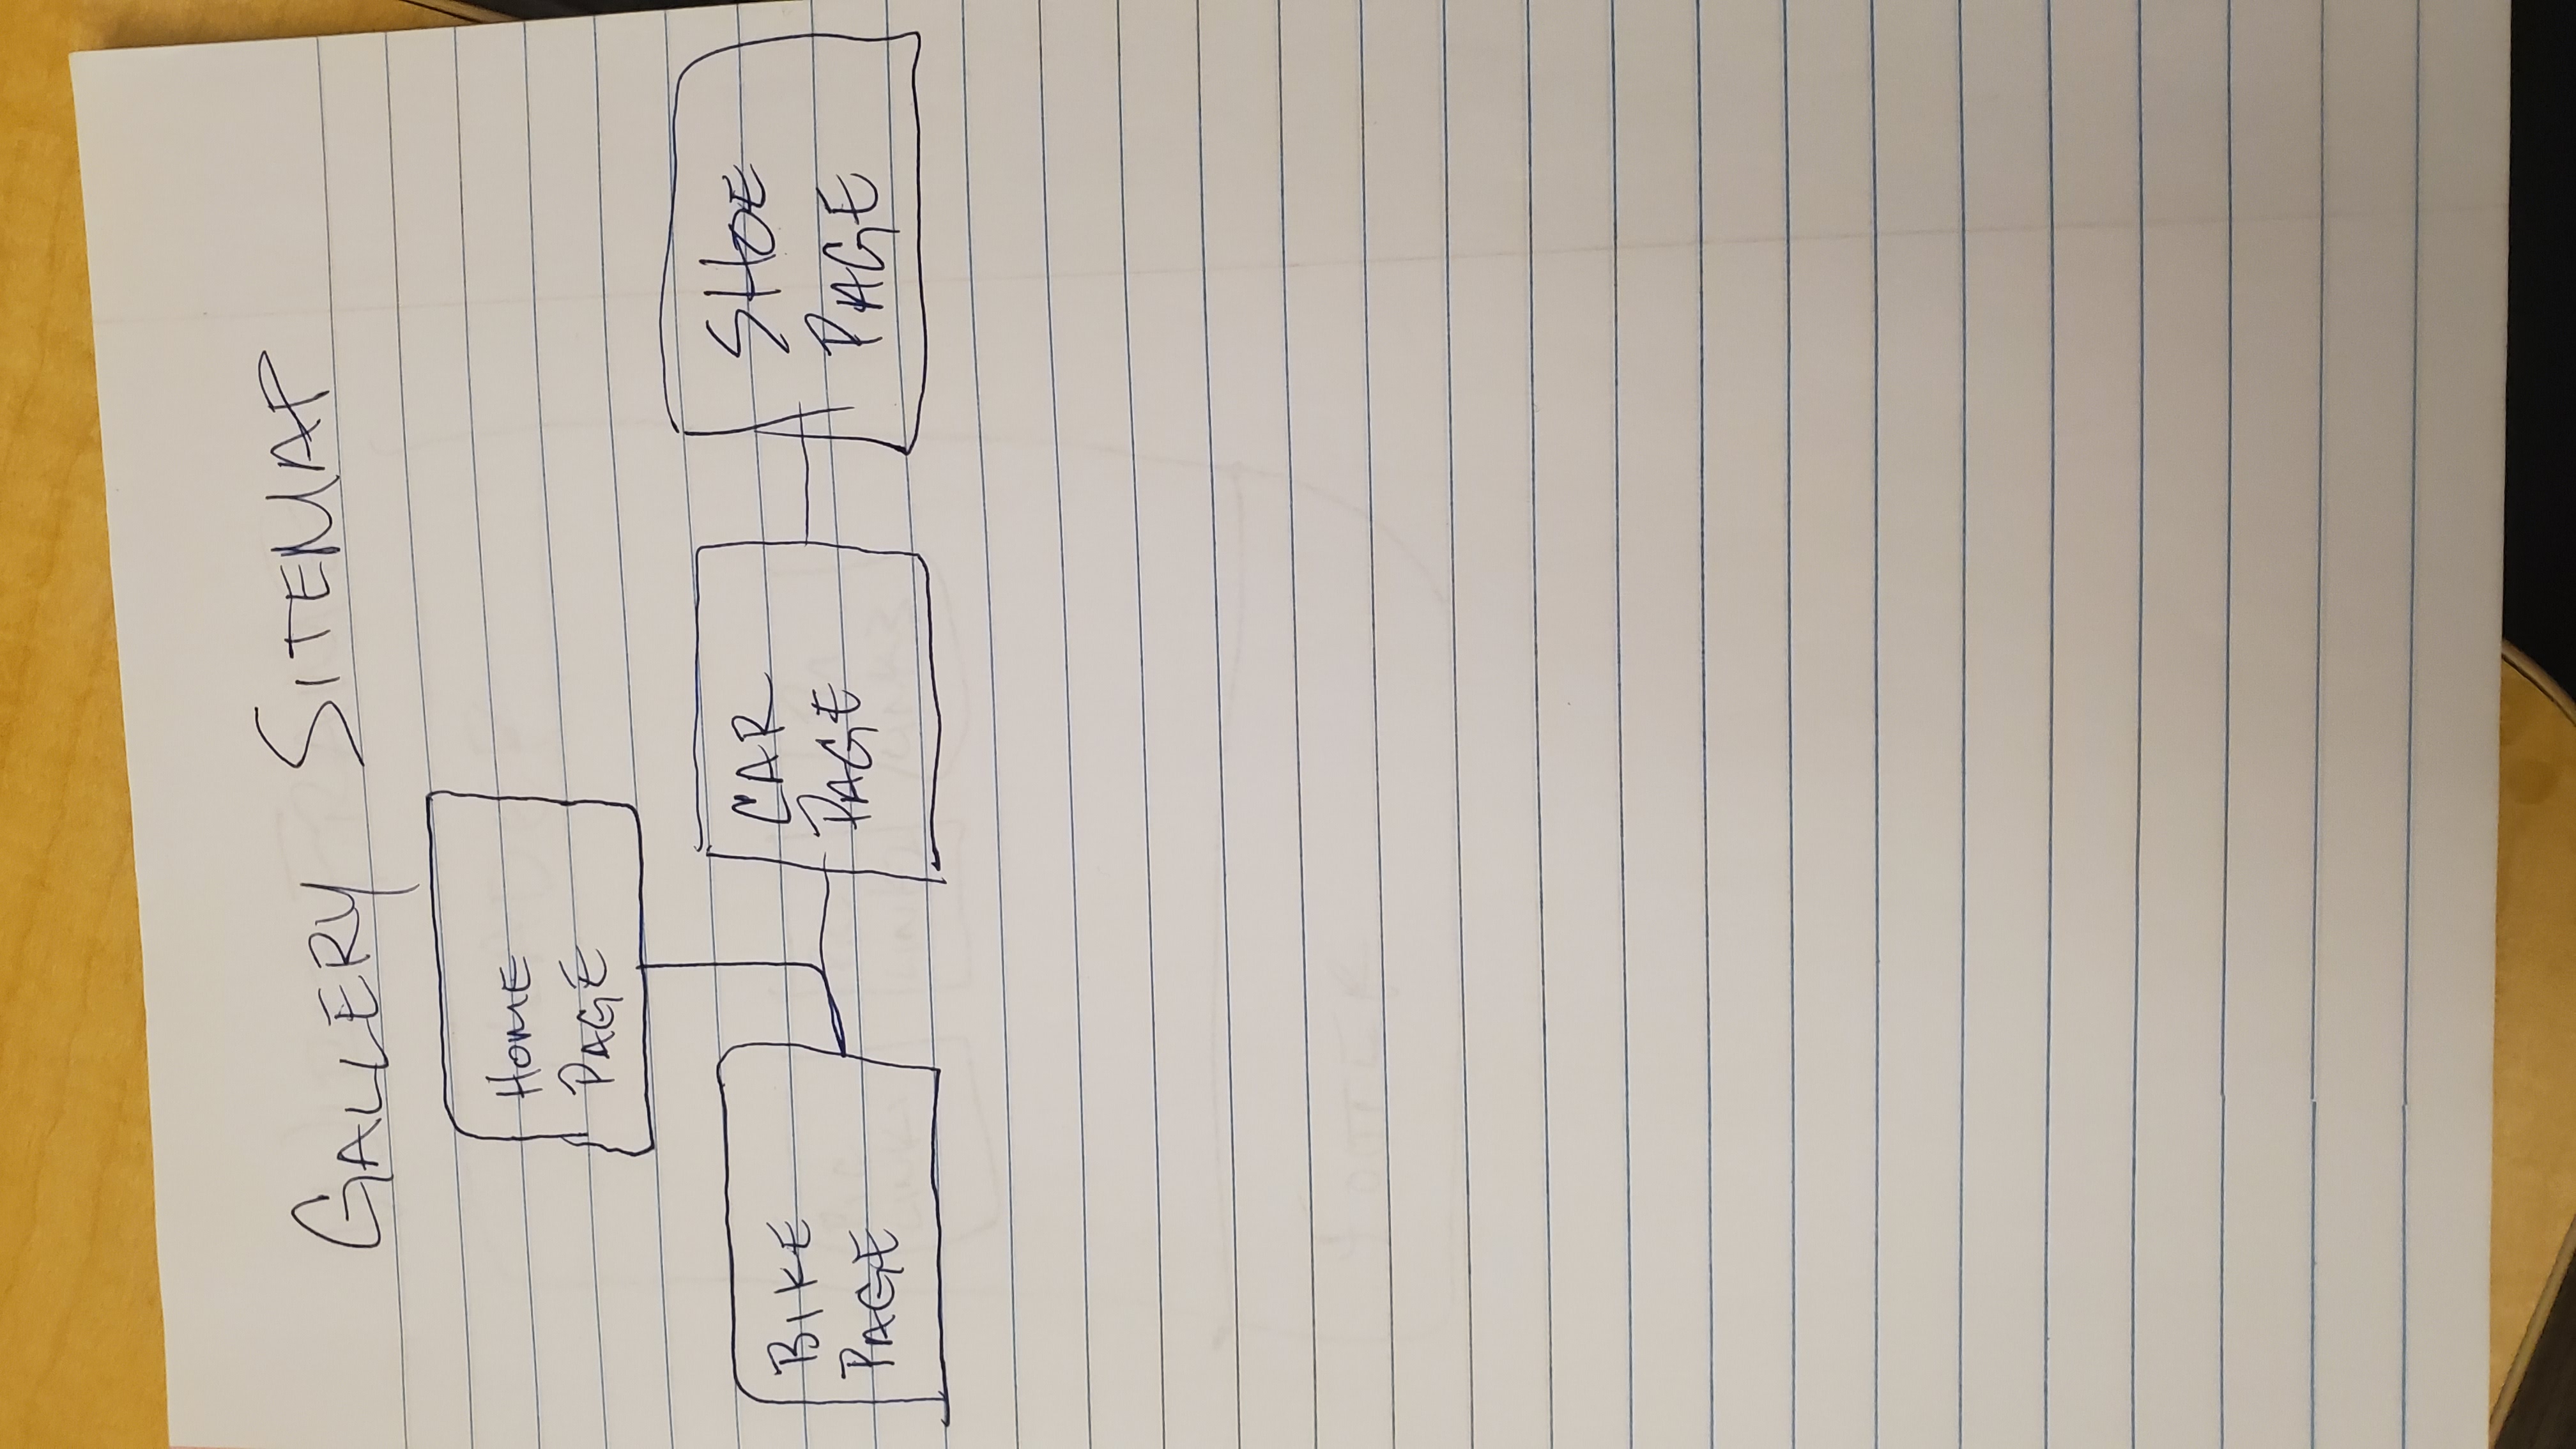 GALLERY SITEMAP
HOME
PAGE
BIKE
PAGE
CAR
PAGE
SHOE
PAGE